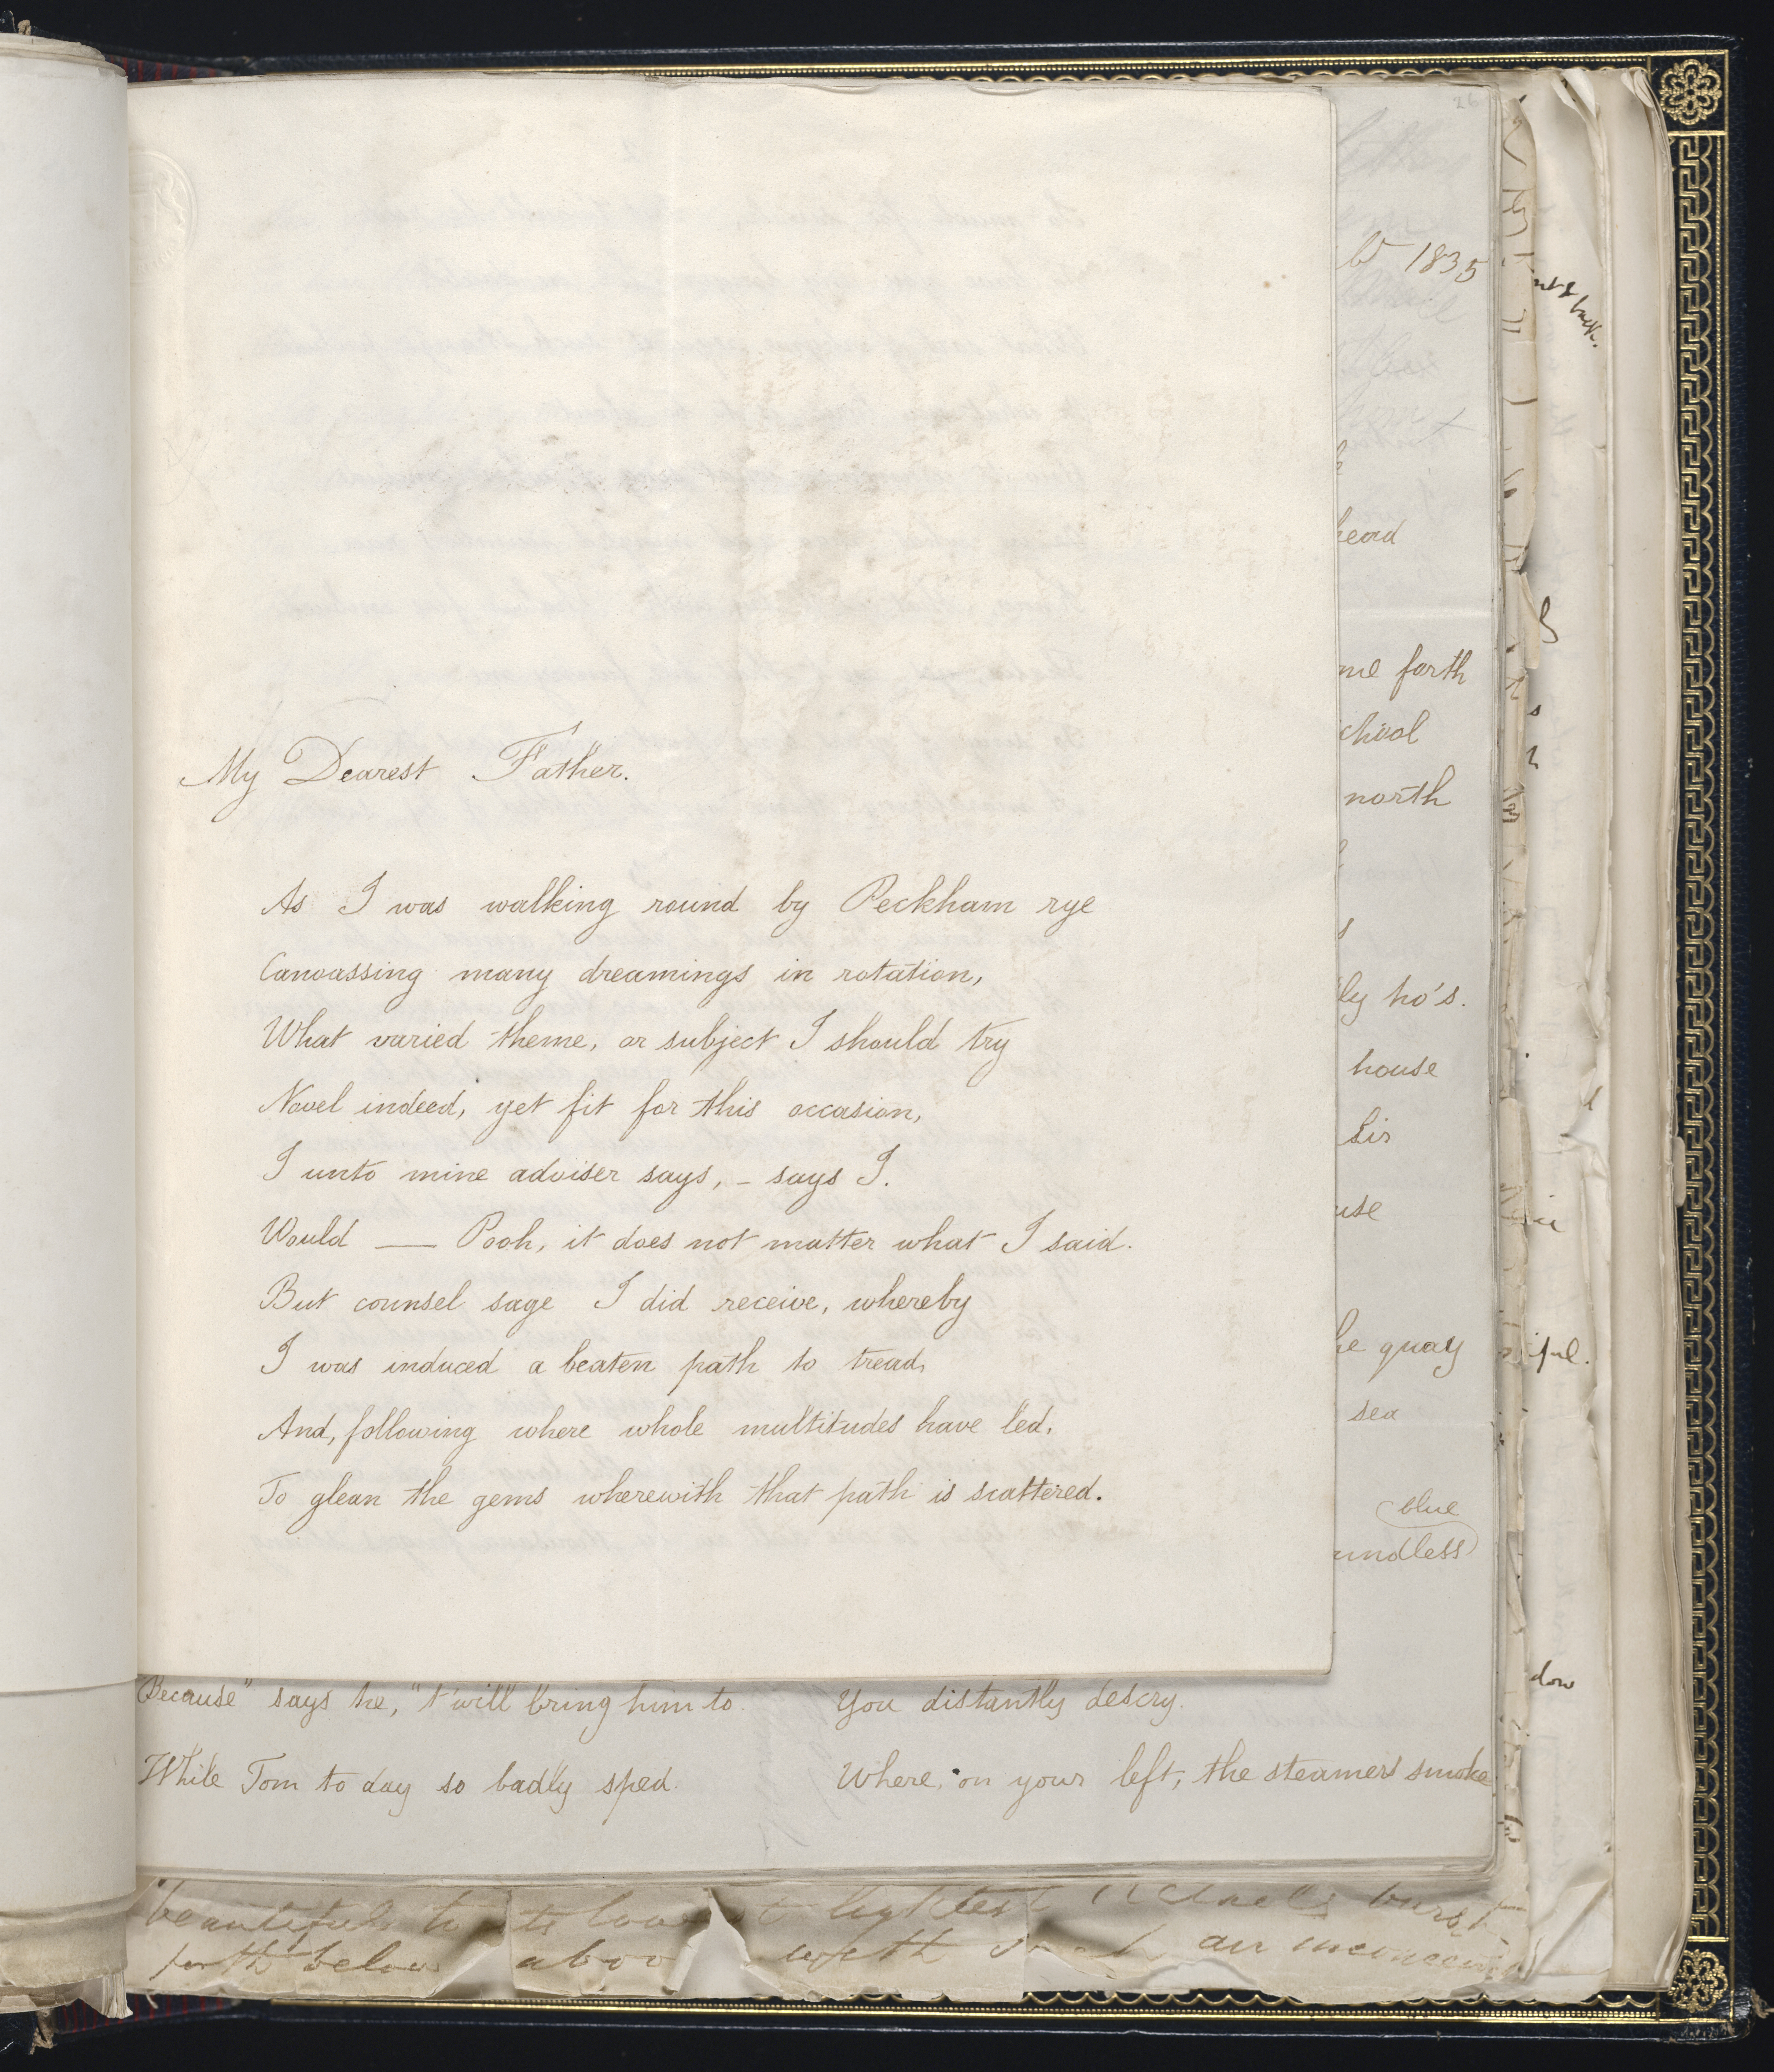 My Dearest Father.
As I was walking round by Peckham rye
Canvassing many dreamings in rotation,
What varied theme, or subject I should try
Novel indeed, yet fit for this occasion,
I unto mine adviser says, – says I.
Would — Pooh, it does not matter what I said.
But counsel sage I did receive, whereby
I was induced a beaten path to tread,
And, following where whole multitudes have led,
To glean the gems wherewith that path is scattered.
Because" says he, "t'will bring him to
While Tom to day so badly sped.
You distantly descry.
Where, on your left, the steamers smoke
26
1835
heard
me forth
chool
north
ly ho's.
house
Sir
use
he quay
sea
blue
undless
beautiful
forth below above with air